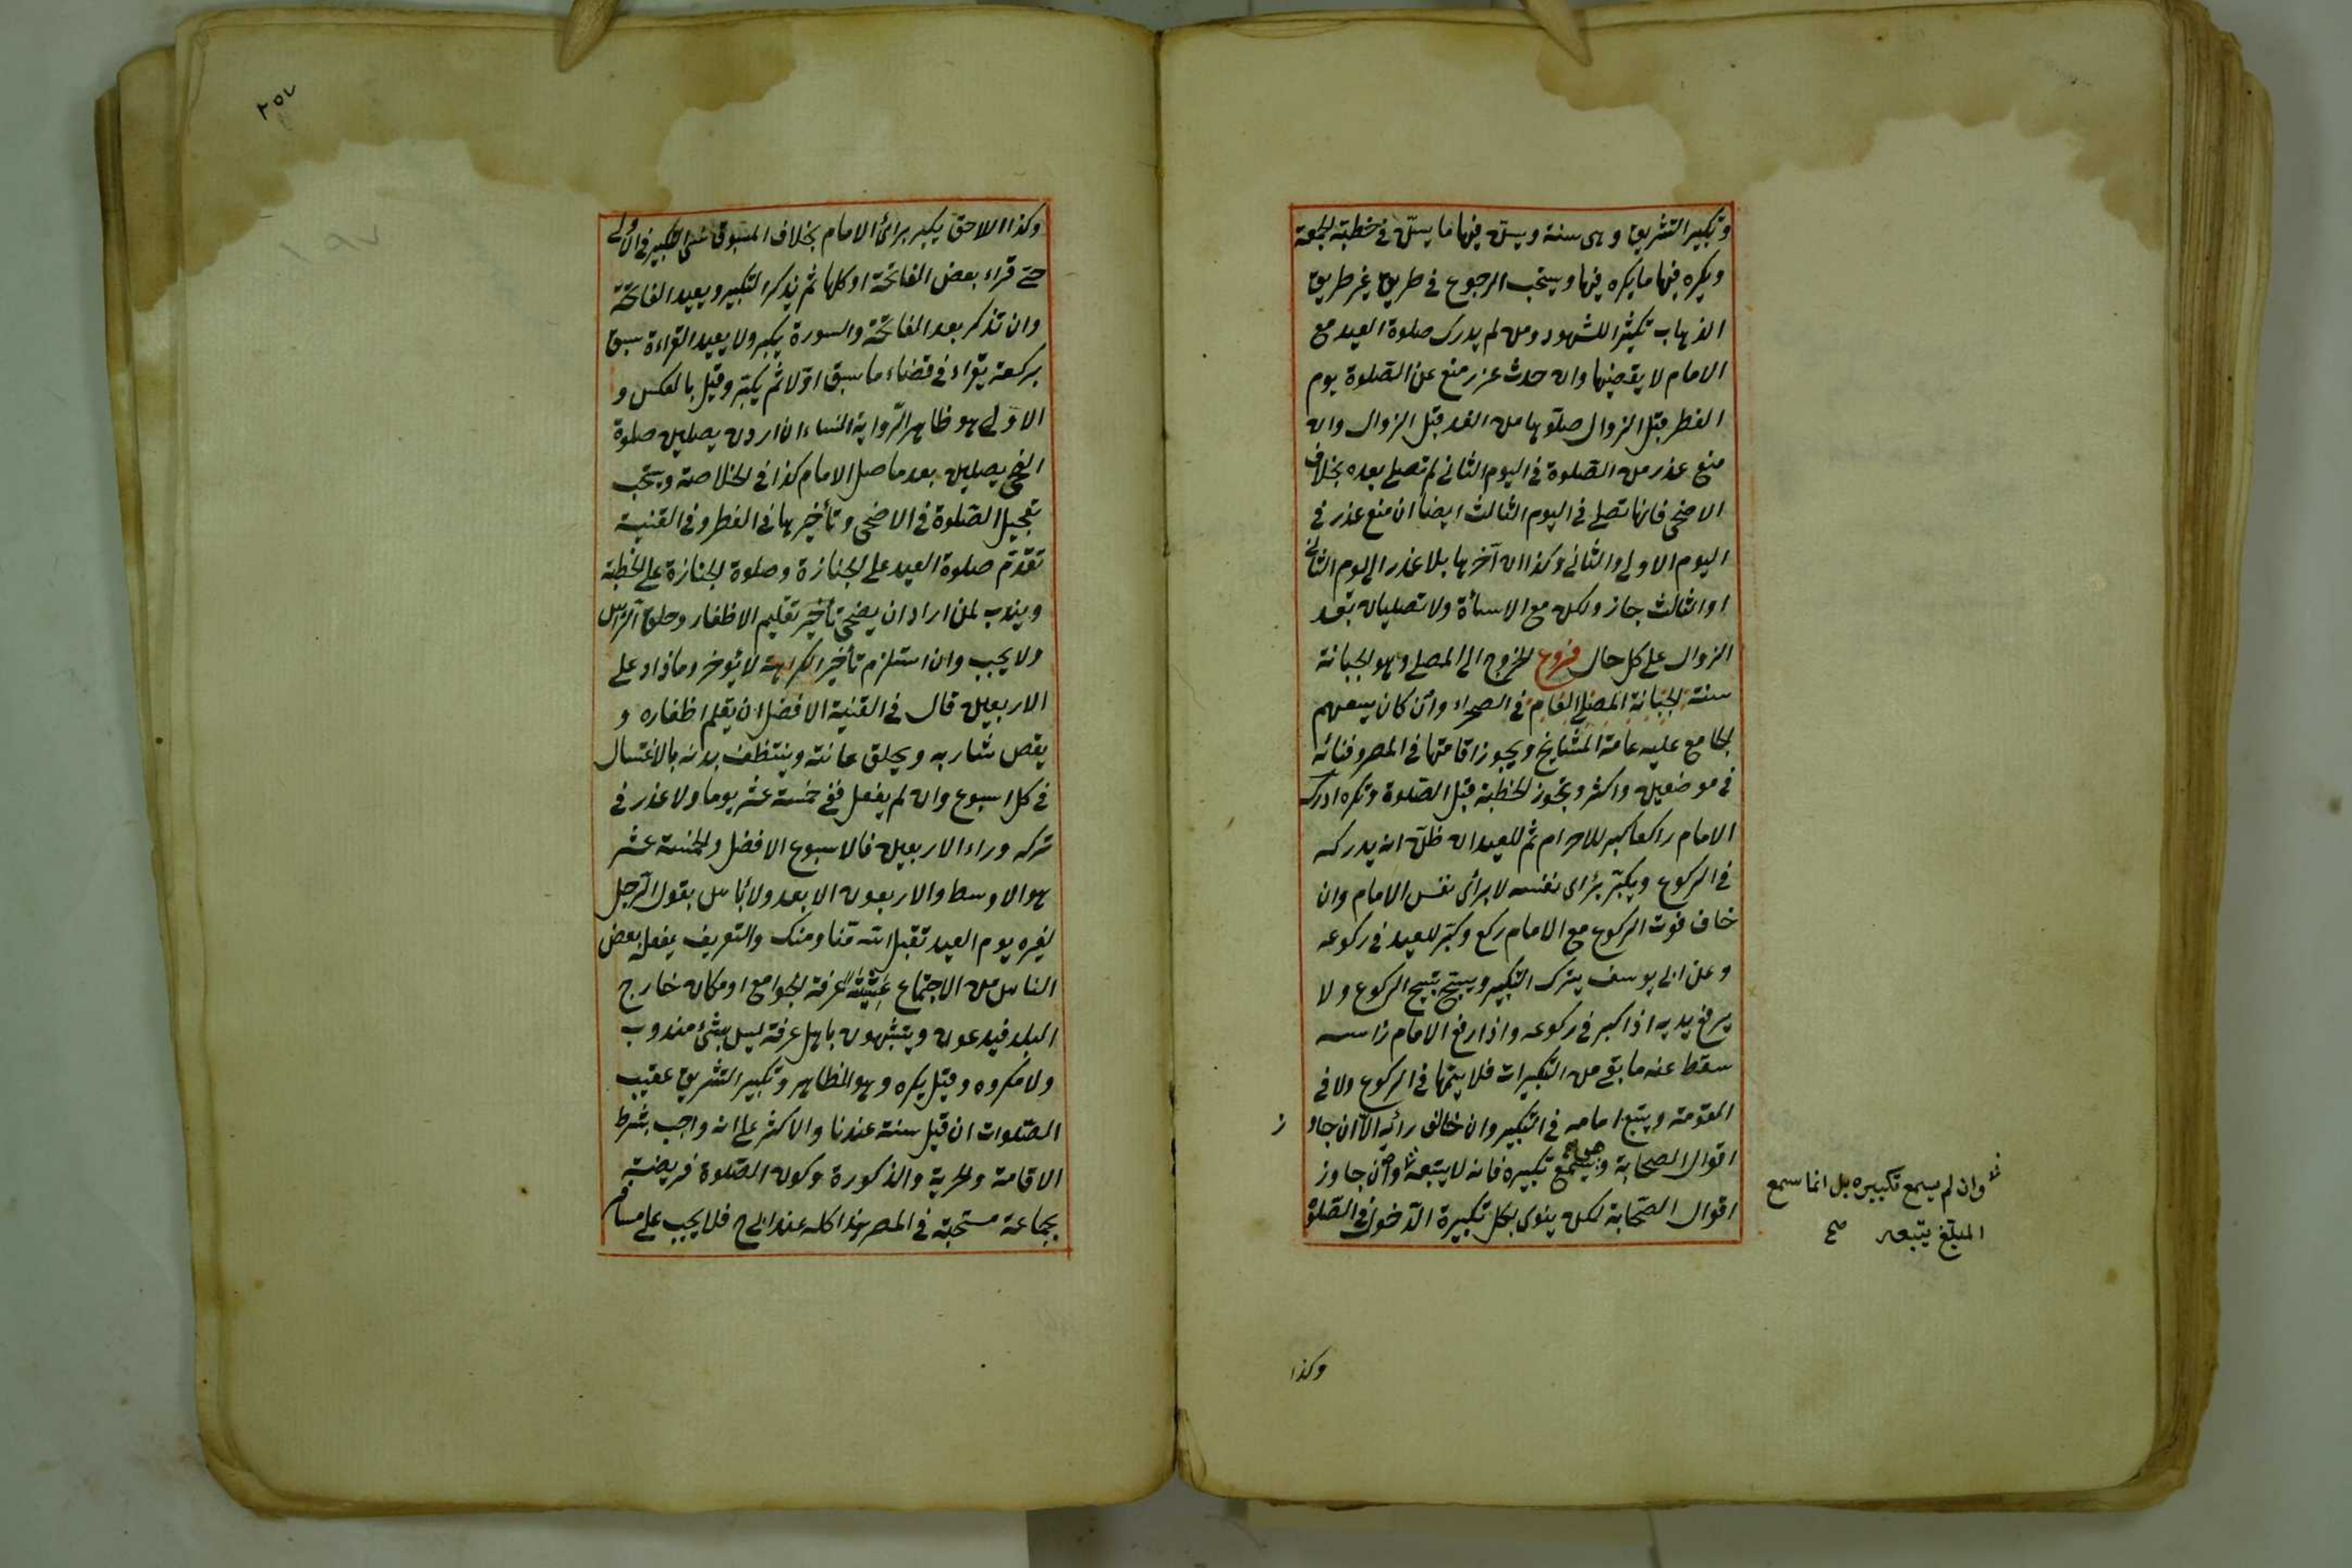 وتكبير التشريق وهى سنة ويسن فيها ما يسن في خطبة الجمعة
ويكره فيها ما يكره فيها ويستحب الرجوع في طريق غير طريق
الذهاب تكثيرا للشهود ومن لم يدرك صلوة العيد مع
الامام لا يقضيها وان حدث عذر منع عن الصلوة يوم
الفطر قبل الزوال صلّوها من الغد قبل الزوال وان
منع عذر من الصلوة في اليوم الثاني لم تصلى بعده بخلاف
الاضحى فانها تصلى في اليوم الثالث ايضا ان منع عذر في
اليوم الاولى والثاني وكذا ان آخرها بلا عذر الى اليوم الثاني
او الثالث جاز ولكن مع الاسأة ولا تصليان بعد
الزوال على كل حال فروع الخروج الى المصلى وهو الجبانة
سنة الجبانة المصلى العام في الصحراء وان كان يسعهم
الجامع عليه عامة المشايخ ويجوز اقامتها في المصر وفنائه
في موضعين واكثر وتجوز الخطبة قبل الصلوة وتكره ادرك
الامام راكعا كبر للاحرام ثم للعيد ان ظن انه يدركه
في الركوع ويكبّر برأى نفسه لا برأى نفس الامام وان
خاف فوت الركوع مع الامام ركع وكبّر للعيد في ركوعه
وعن ابى يوسف يترك التكبير ويسبّح تسبيح الركوع ولا
يرفع يديه اذا كبر في ركوعه واذا رفع الامام رأسه
سقط عنه ما بقى من التكبيرات فلا يتمها في الركوع ولا في
القومة ويتبع امامه في التكبير وان خالف رأيه الا ان جاوز
اقوال الصحابة وسمع تكبيره فانه لا يتبعه وان جاوز
اقوال الصّحابة لكن ينوى بكل تكبيرة الدخول في الصّلوة
وان لم يسمع تكبيره بل انما سمع
المبلّغ يتبعه صح
وكذا
٢٥٧
وكذا اللاحق يكبر برأى الامام بخلاف المسبوق نسى التكبير في الاولى
حتى قراء بعض الفاتحة او كلها ثم يذكر التكبير ويعيد الفاتحة
وان تذكر بعد الفاتحة والسورة يكبر ولا يعيد القراءة سبق
بركعة يقراء في قضاء ما سبق اوّلا ثم يكبّر وقيل بالعكس و
الاولى هو ظاهر الرّواية النساء ان اردن يصلين صلوة
الضحى يصلين بعد ما صلى الامام كذا في الخلاصة ويستحب
تعجيل الصّلوة في الاضحى وتأخيرها في الفطر وفي القنية
تقدّم صلوة العيد على الجنازة وصلوة الجنازة على الخطبة
ويندب لمن اراد ان يضحى تأخير تقليم الاظفار وحلق الرّاس
ولا يجب وان استلزم تأخير الكراهة لا يؤخر وما زاد على
الاربعين قال في القنية الافضل ان يقلم اظفاره و
يقص شاربه ويحلق عانته وينتظف بدنه بالاغتسال
في كل اسبوع وان لم يفعل ففي خمسة عشر يوما ولا عذر في
تركه وراء الاربعين فالاسبوع الافضل والخمسة عشر
هو الاوسط والاربعون الابعد ولا بأس بقول الرّجل
لغيره يوم العيد تقبل الله منّا ومنك والتعريف يفعل بعض
الناس من الاجتماع عشية عرفة الجوامع او مكان خارج
البلد فيدعون ويتشبهون باهل عرفة ليس بشئ مندوب
ولا مكروه وقيل يكره وهو الظاهر وتكبير التشريق عقيب
الصّلوات ان قيل سنة عندنا والاكثر على انه واجب بشرط
الاقامة والحرية والذكورة وكون الصّلوة فريضة
بجماعة مستحبّة في المصر هذا كله عند ابى ح فلا يجب على مسافر